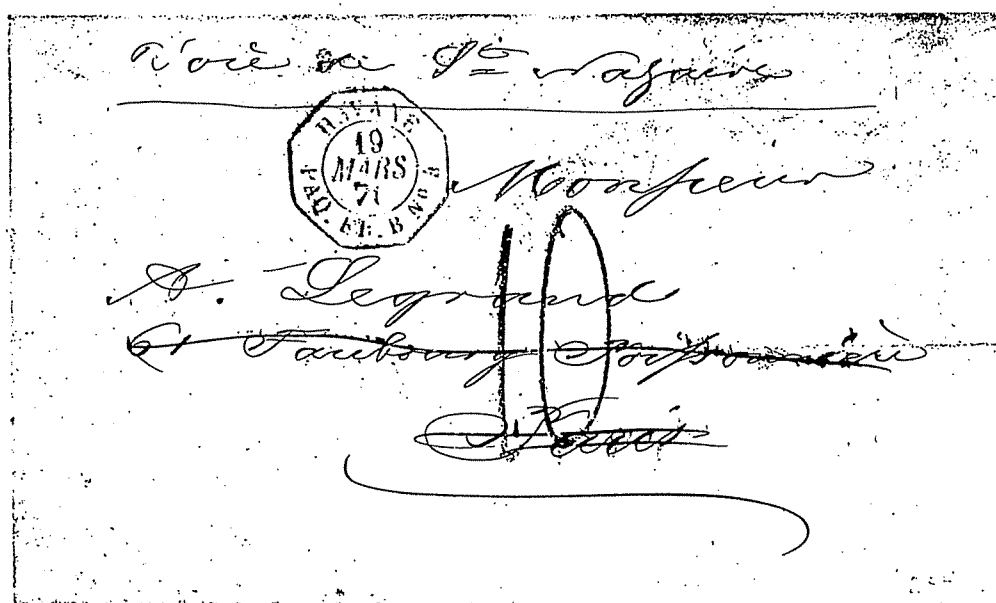 Voie de St Nazaire
HAVANE
19
MARS
71
PAQ. FR. B No 3
Monsieur
A. Legrand
61 Faubourg Poissonnière
Paris
10